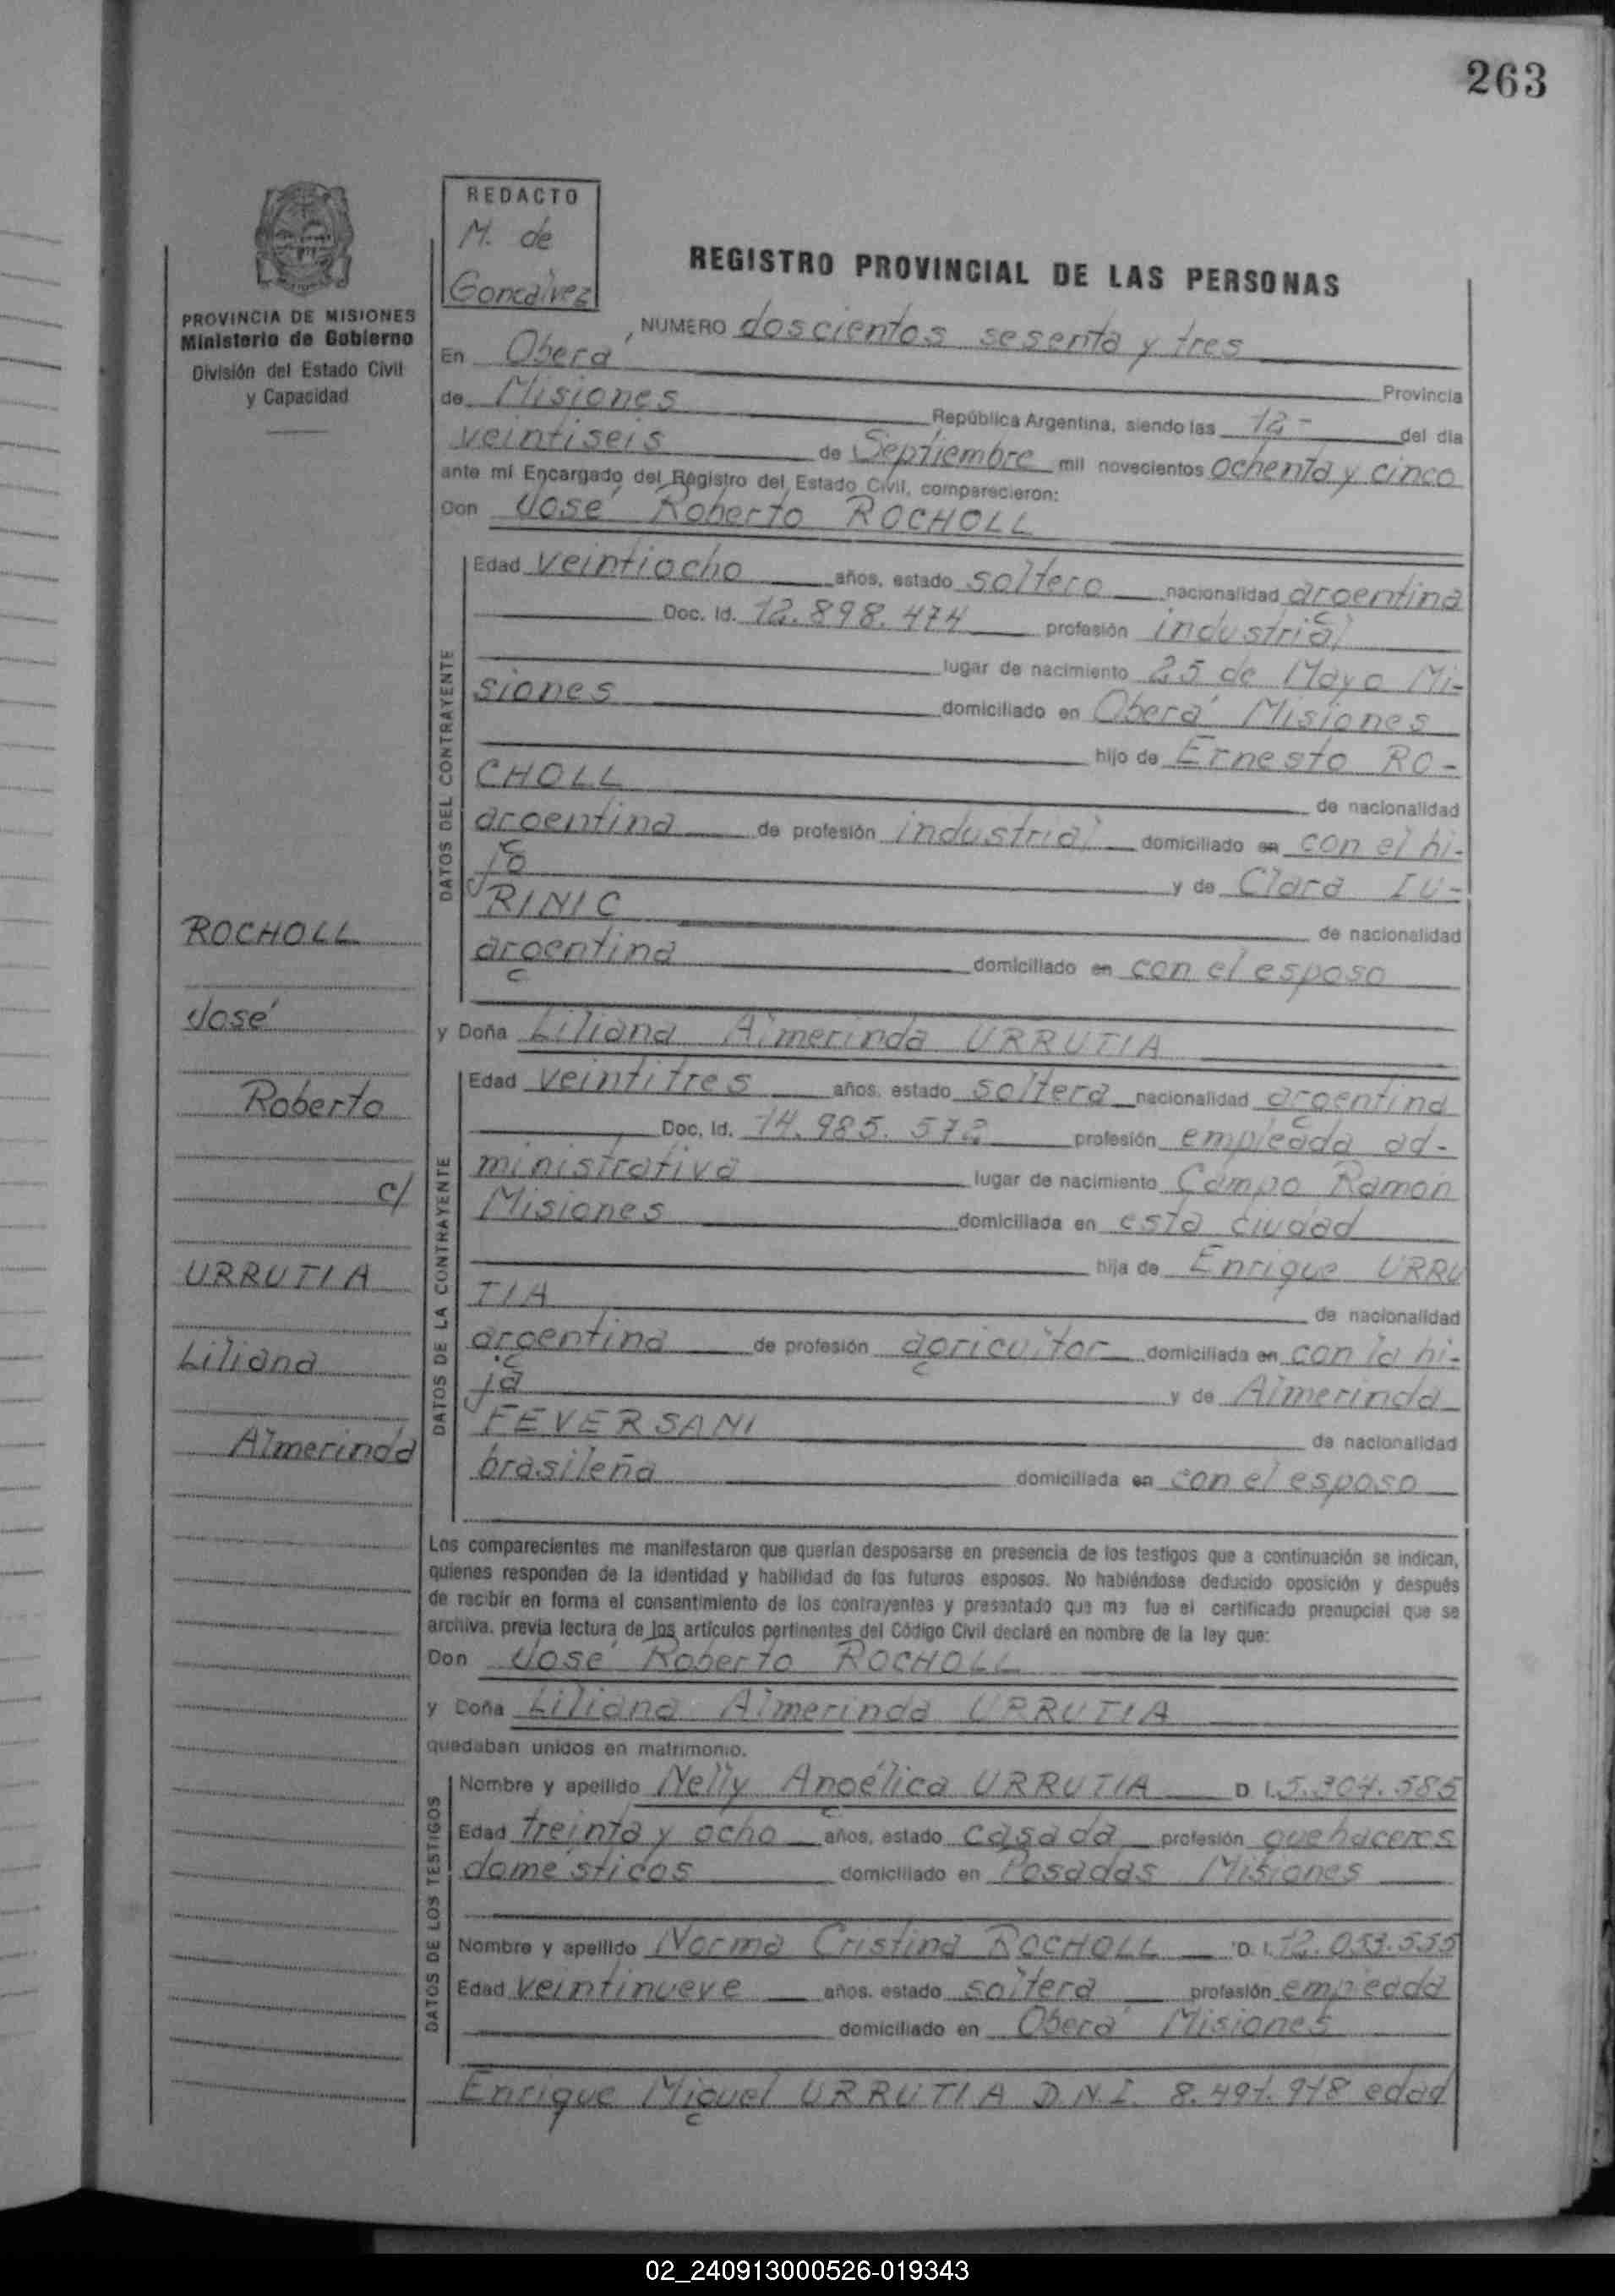 263
REDACTO
M. de
Goncalvez
REGISTRO PROVINCIAL DE LAS PERSONAS
PROVINCIA DE MISIONES
Ministerio de Gobierno
División del Estado Civil
y Capacidad
NUMERO doscientos sesenta y tres
En Oberá Provincia
de Misiones República Argentina, siendo las 12- del día
veintiseis de Septiembre mil novecientos ochenta y cinco
ante mí Encargado del Registro del Estado Civil, comparecieron:
Don José Roberto ROCHOLL
DATOS DEL CONTRAYENTE
Edad veintiocho años, estado soltero nacionalidad argentina
Doc. Id. 12.898.474 profesión industrial
lugar de nacimiento 25 de Mayo Mi-
siones domiciliado en Oberá Misiones
hijo de Ernesto RO-
CHOLL de nacionalidad
argentina de profesión industrial domiciliado en con el hi-
jo y de Clara IU-
RINIC de nacionalidad
argentina domiciliado en con el esposo
y Doña Liliana Almerinda URRUTIA
DATOS DE LA CONTRAYENTE
Edad veintitres años, estado soltera nacionalidad argentina
Doc. Id. 14.985.572 profesión empleada ad-
ministrativa lugar de nacimiento Campo Ramón
Misiones domiciliada en esta ciudad
hija de Enrique URRU
TIA de nacionalidad
argentina de profesión agricultor domiciliada en con la hi-
ja y de Almerinda
FEVERSANI de nacionalidad
brasileña domiciliada en con el esposo
ROCHOLL
José
Roberto
c/
URRUTIA
Liliana
Almerinda
Los comparecientes me manifestaron que querían desposarse en presencia de los testigos que a continuación se indican,
quienes responden de la identidad y habilidad de los futuros esposos. No habiéndose deducido oposición y después
de recibir en forma el consentimiento de los contrayentes y presentado que me fue el certificado prenupcial que se
archiva, previa lectura de los artículos pertinentes del Código Civil declaré en nombre de la ley que:
Don José Roberto ROCHOLL
y Doña Liliana Almerinda URRUTIA
quedaban unidos en matrimonio.
DATOS DE LOS TESTIGOS
Nombre y apellido Nelly Angélica URRUTIA D. I. 5.304.585
Edad treinta y ocho años, estado casada profesión quehaceres
domesticos domiciliado en Posadas Misiones
Nombre y apellido Norma Cristina ROCHOLL D. I. 12.053.555
Edad veintinueve años, estado soltera profesión empleada
domiciliado en Oberá Misiones
Enrique Miguel URRUTIA D.N.I. 8.491.918 edad
02_240913000526-019343